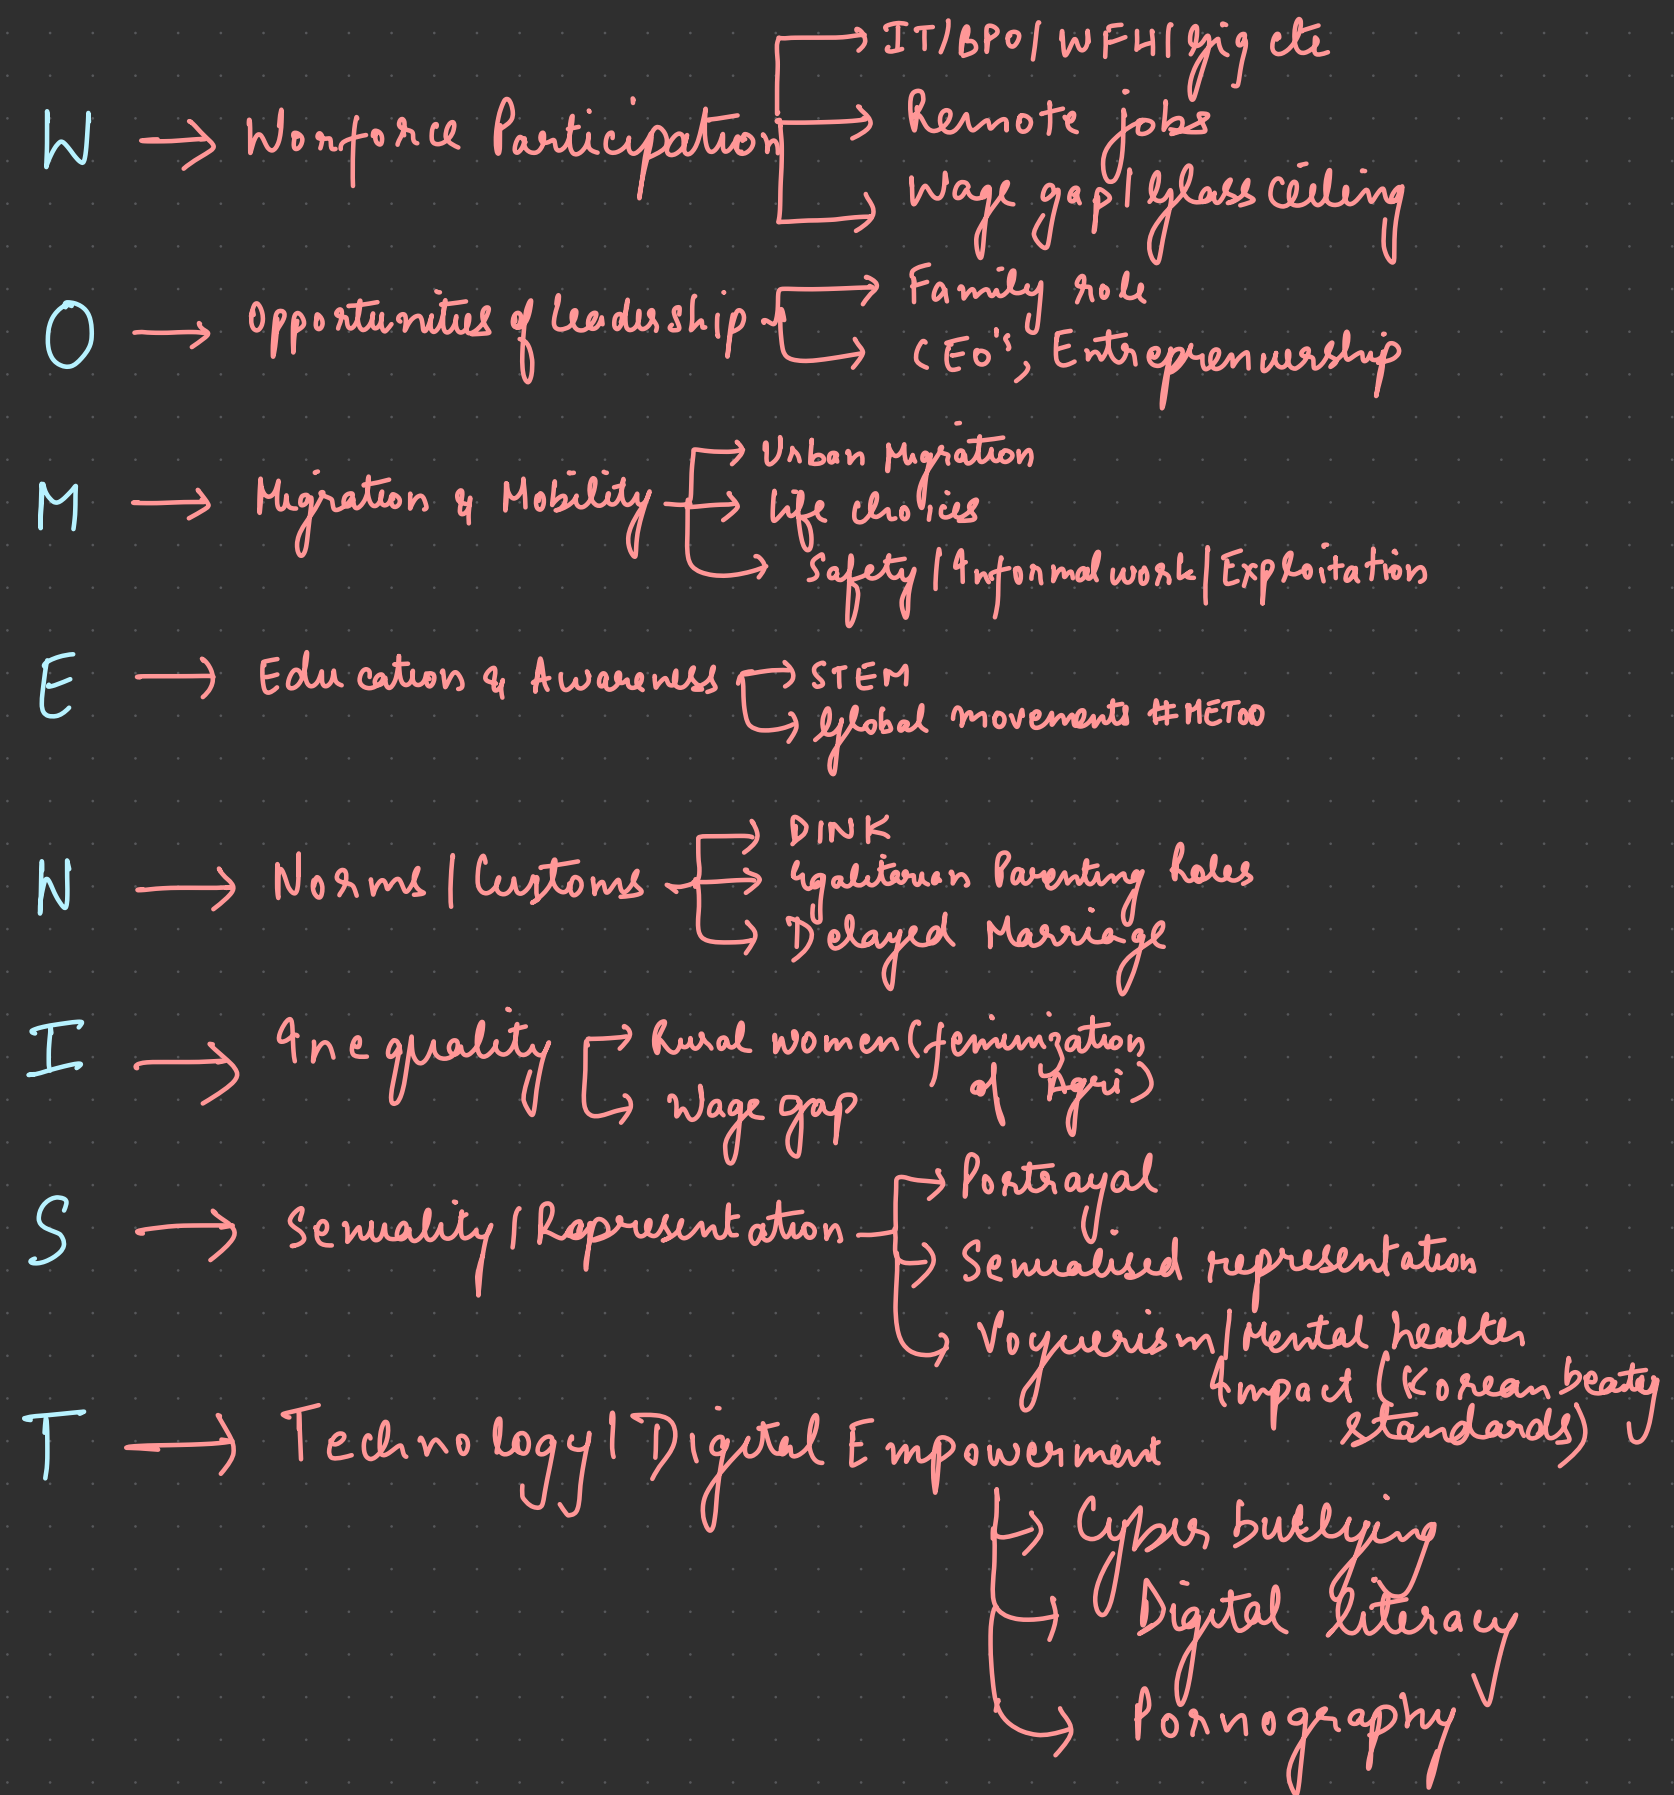 W → Worforce Participation → IT/BPO/WFH/gig etc
→ Remote jobs
→ Wage gap/glass ceiling
O → Opportunities of leadership → Family role
→ CEO's, Entreprenuership
M → Migration & Mobility → Urban Migration
→ life choices
→ Safety/Informal work/Exploitation
E → Education & Awareness → STEM
→ global movements #METOO
N → Norms/Customs → DINK
→ Egalitarian Parenting Roles
→ Delayed Marriage
I → Inequality → Rural women (feminization
of Agri)
→ Wage gap
S → Sexuality/Representation → Portrayal
→ Sexualised representation
→ Voyuerism/Mental health
Impact (Korean beauty
standards)
T → Technology/Digital Empowerment
→ Cyber bullying
→ Digital literacy
→ Pornography